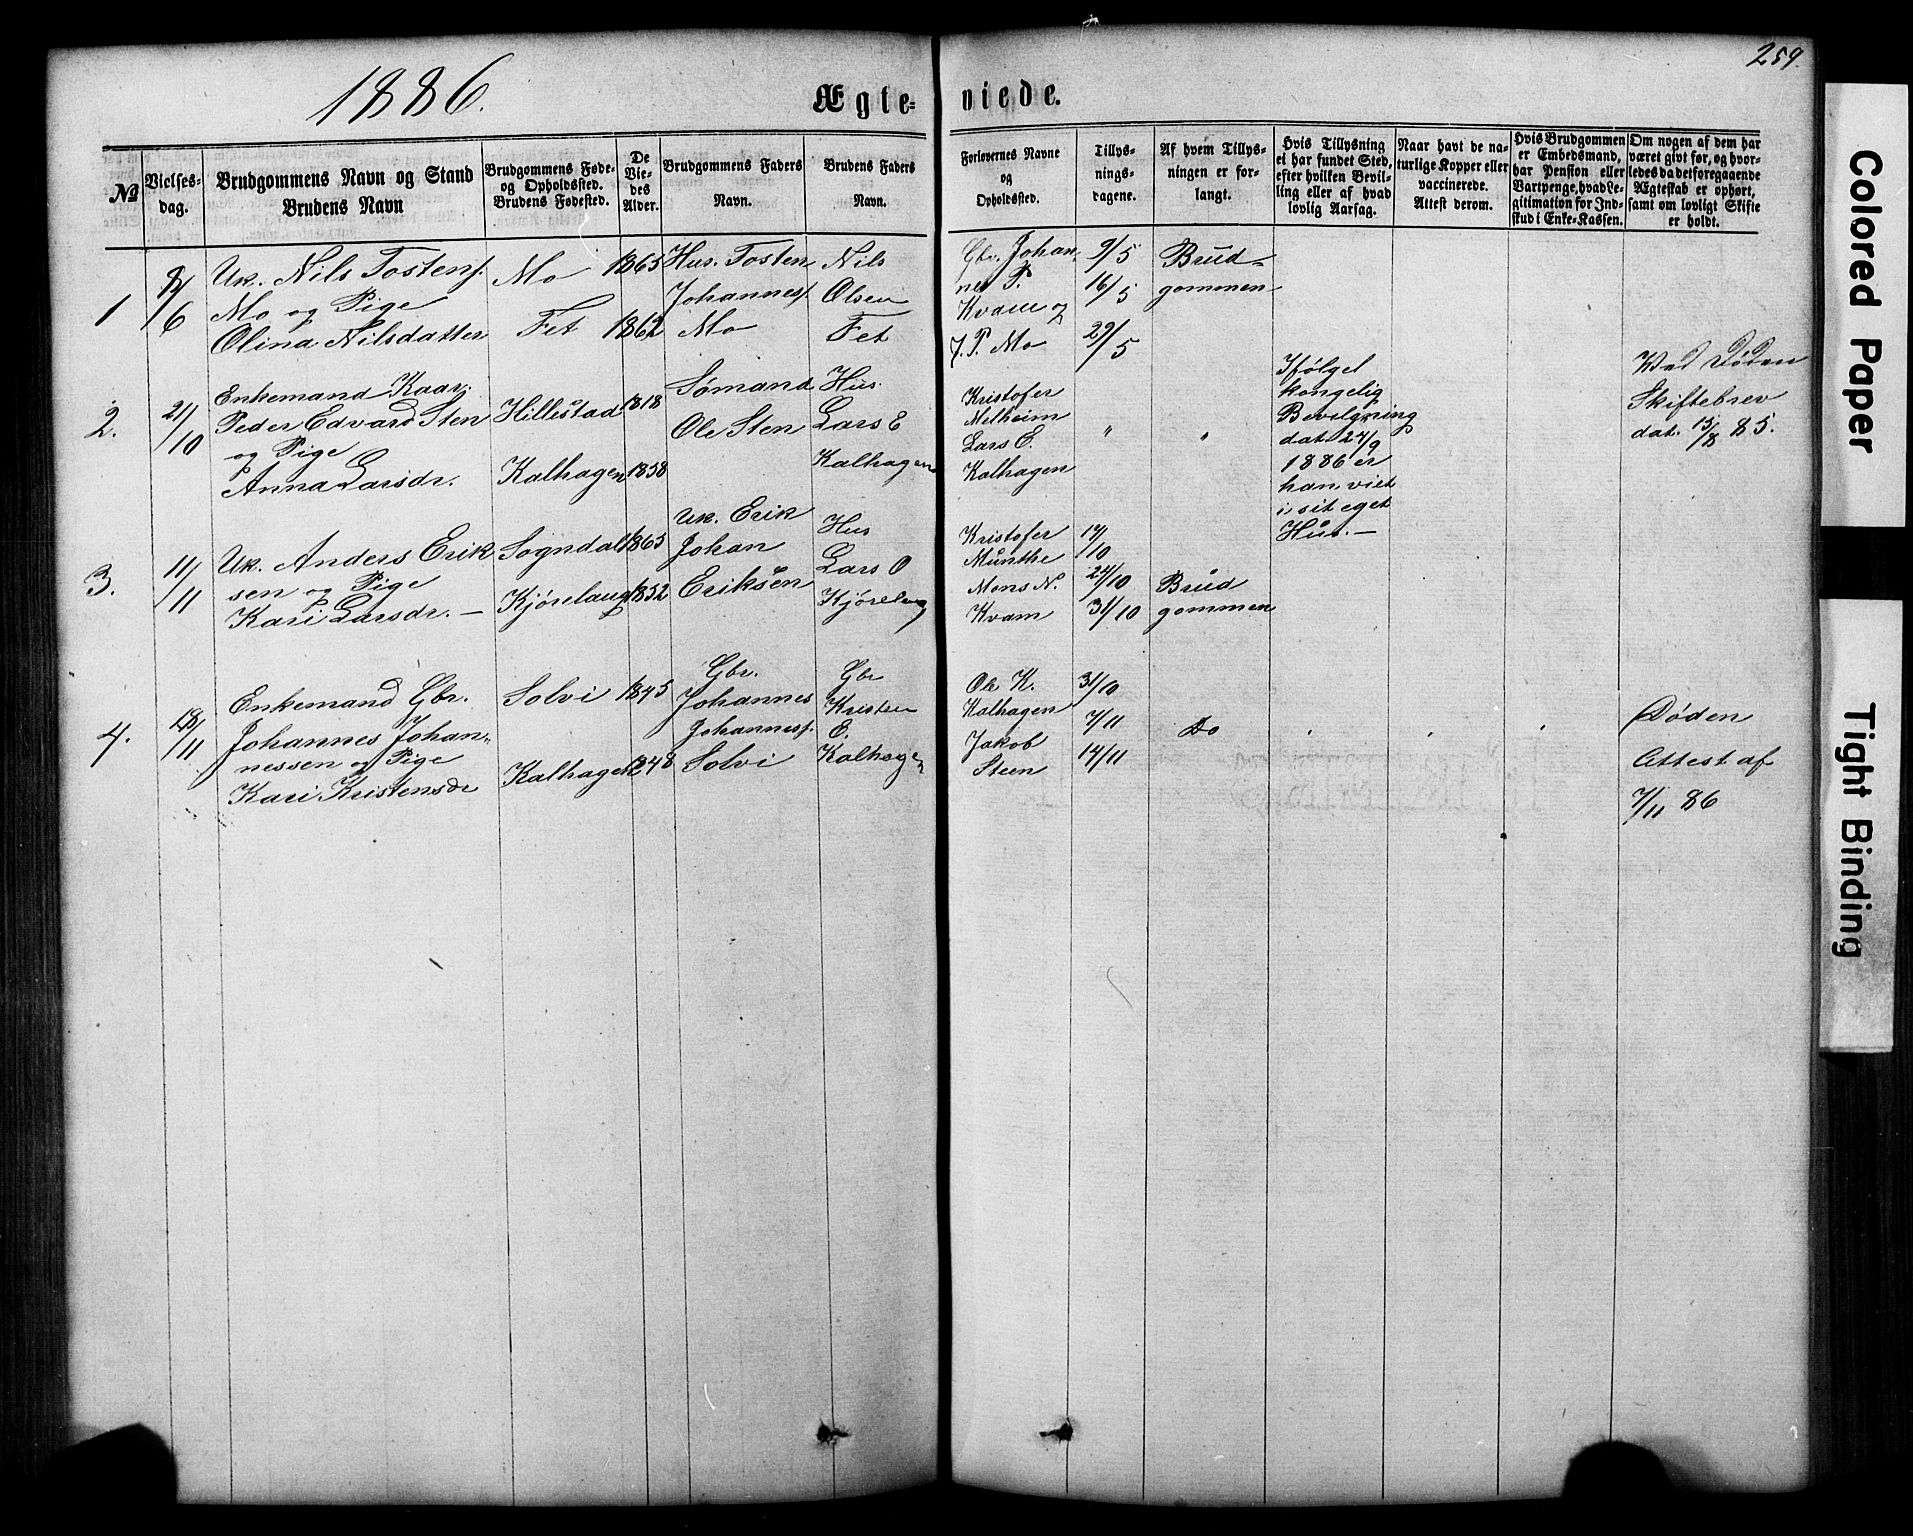 1886.
Ægte-
viede.
259.
№
Vielses-
dag.
Brudgommens Navn og Stand
Brudens Navn
Brudgommens Føde-
og Opholdssted.
Brudens Fødested.
De
Vie-
des
Alder.
Brudgommens Faders
Navn.
Brudens Faders
Navn.
Forlovernes Navne
og
Opholdssted.
Tillys-
nings-
dagene.
Af hvem Tillys-
ningen er for-
langt.
Hvis Tillysning
ei har fundet Sted,
efter hvilken Bevil-
ling eller af hvad
lovlig Aarsag.
Naar havt de na-
turlige Kopper eller
vaccinerede.
Attest derom.
Hvis Brudgommen
er Embedsmand,
har Pension eller
Vartpenge, hvad Le-
gitimation for Ind-
skud i Enke-Kassen.
Om nogen af dem har
været givt før, og hvor-
ledes da det foregaaende
Ægteskab er ophørt,
samt om lovligt Skifte
er holdt.
1
8/6
Uk. Nils Tostens.
Mo og Pige
Olina Nilsdatter
Mo
Fet
1865
1862
Hus. Tosten
Johannes.
Mo
Nils
Olsen
Fet
Gbr. Johan
nes P.
Kvam og
J. P. Mo
9/5
16/5
29/5
Brud-
gommen
2.
21/10
Enkemand Kaar.
Peder Edvard Sten
og Pige
Anna Larsdr.
Hillestad
Kalhagen
1818
1858
Sømand
Ole Sten
Hus.
Lars E
Kalhagen
Kristofer
Melheim
Lars E.
Kalhagen
"
"
Ifølgel
kongelig
Bevilgning
dat. 24/9
1886 er
han viet
i sit eget
Hus. —
Ved Døden
Skiftebrev
dat. 15/8 85.
3.
11/11
Uk. Anders Erik
sen og Pige
Kari Larsdr. —
Sogndal
Kjørelaug
1865
1852
Uk. Erik
Johan
Eriksen
Hus
Lars O
Kjørelaug
Kristofer
Munthe
Mons N.
Kvam
17/10
24/10
31/10
Brud
gommen
4.
18/11
Enkemand Gbr.
Johannes Johan-
nessen og Pige
Kari Kristensdr
Solvi
Kalhagen
1845
1848
Gbr.
Johannes
Johannes.
Solvi
Gbr
Kristen
E.
Kalhagen
Ole K.
Kalhagen
Jakob
Steen
31/10
7/11
14/11
Do
Døden
Attest af
7/11 86
Colored Paper
Tight Binding